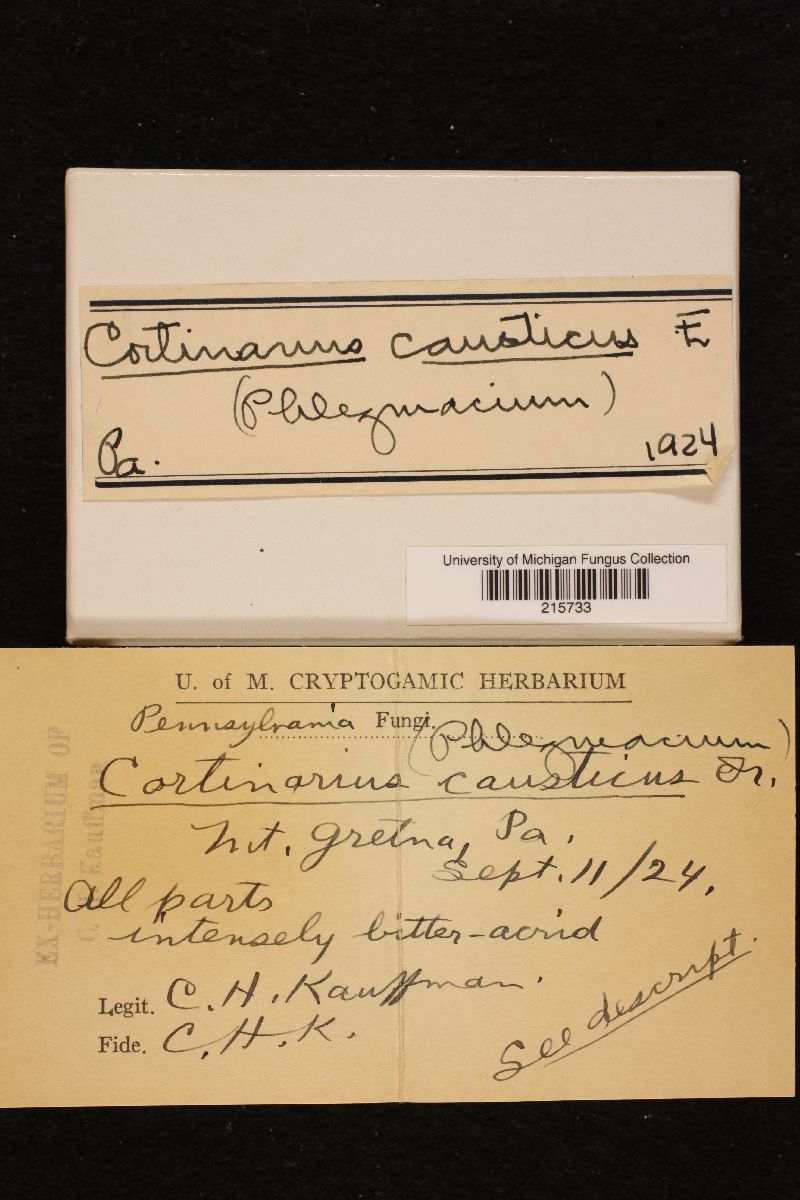 Cortinarius causticus Fr
(Phlegmacium)
Pa.
1924
University of Michigan Fungus Collection
215733
U. of M. CRYPTOGAMIC HERBARIUM
Pennsylvania Fungi.
(Phlegmacium)
Cortinarius causticus Fr.
Mt. Gretna, Pa.
Sept. 11/24.
All parts
intensely bitter-acrid
Legit. C. H. Kauffman.
Fide. C. H. K.
See descript.
EX-HERBARIUM OF
C. H. Kauffman